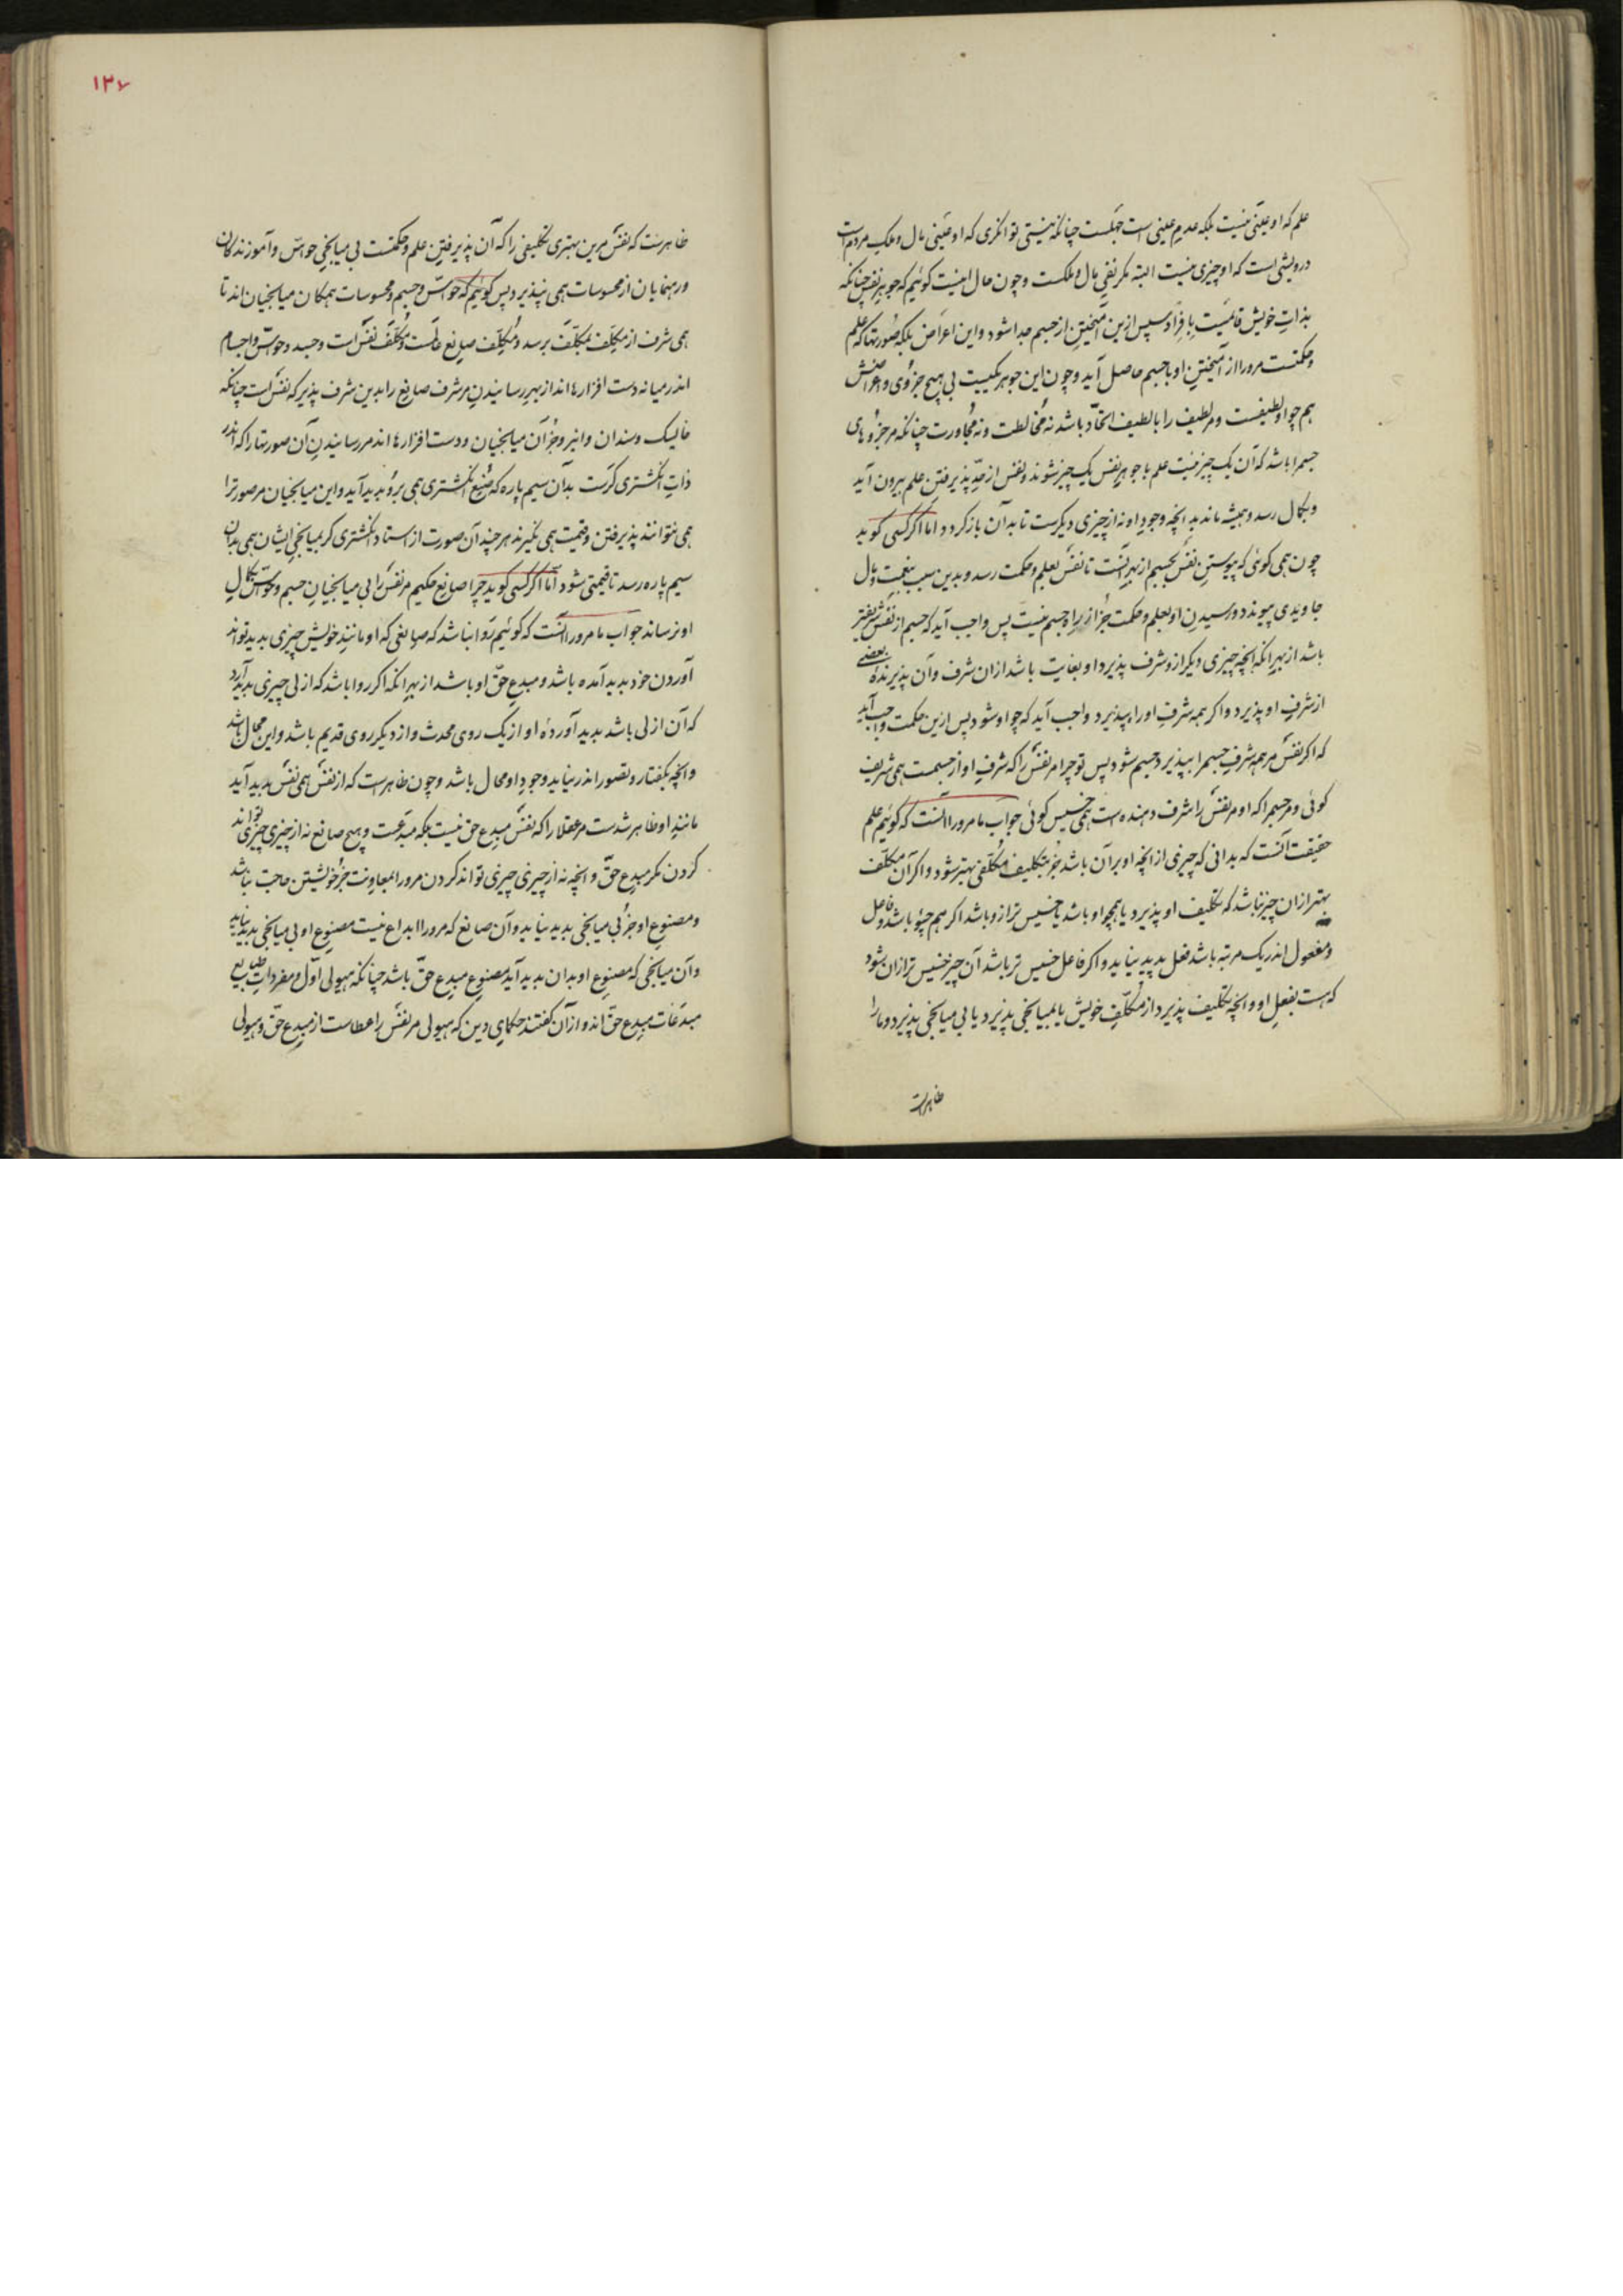 علم که او عینی نیست بلکه عدم عینی است جهلست چنانکه نیستی توانکری که او عینی مال و ملک مردم است
درویشی است که او چیزی نیست البته مکر نفی مال و ملکست و چون حال اینست کوئیم که جوهر نفس چنانکه
بذات خویش قائمست بانفراد سپس ازین آمیختن از جسم جدا شود و این اعراض بلکه صورتها که علم
و حکمتست مرورا از آمیختن او با جسم حاصل آید و چون این جوهر یکیست بی هیچ جزوی و اعراضش
هم چو او لطیفست و مر لطیف را با لطیف اتحاد باشد نه مخالطت و نه مجاورت چنانکه مر جزوهای
جسم را باشد که آن یک چیز نیست علم با جوهر نفس یک چیز شوند و نفس از حد پذیرفتن علم بیرون آید
و بکمال رسد و همیشه ماند بدانچه وجود او نه از چیزی دیکرست تا بدآن باز کردد اما اکر کسی کوید
چون همی کوئی که پیوستن نفس بجسم از بهر آنست تا نفس بعلم و حکمت رسد و بدین سبب بنعمت و مال
جاویدی پیوندد و رسیدن او بعلم و حکمت جز از راه جسم نیست پس واجب آید که جسم از نفس شریفتر
باشد از بهر انکه انچه چیزی دیکر ازو شرف پذیرد او بغایت باشد ازان شرف وآن پذیرنده بعضی
از شرف او پذیرد و اکر همه شرف او را بپذیرد واجب آید که چو او شود پس ازین حکمت واجب آید
که اکر نفس مر همه شرف جسم را بپذیرد جسم شود پس تو چرا مر نفس را که شرف او از جسمست همی شریف
کوئی و مر جسم را که او مر نفس را شرف دهنده است همی خسیس کوئی جواب ما مرورا آنست که کوئیم علم
حقیقت آنست که بدانی که چیزی از انچه او بر آن باشد جز بتکلیف مکلفی بهتر نشود و اکر آن مکلف
بهتر ازان چیز نباشد که تکلیف او پذیرد یا همچو او باشد یا خسیس تر ازو باشد اکر هم چو او باشد و فاعل
و مفعول اندر یک مرتبه باشد فعل پدید نیاید و اکر فاعل خسیس تر باشد آن چیز خسیس تر ازان شود
که هست بفعل او و انچه تکلیف پذیرد از مکلف خویش یا بمیانجی پذیرد یا بی میانجی پذیرد و ما را
ظاهرست
١٣٧
ظاهرست که نفس مرین بهتری تکلیفی را که آن پذیرفتن علم و حکمتست بی میانجی حواس و آموزندکان
و رهنمایان از محسوسات همی نپذیرد پس کوئیم که حواس و جسم و محسوسات همکان میانجیان اند تا
همی شرف از مکلف بمکلف برسد و مکلف صانع عالمست و مکلف نفس است و جسد و حواس و اجسام
اندر میانه دست افزارها اند از بهر رسانیدن مر شرف صانع را بدین شرف پذیر که نفس است چنانکه
خایسک و سندان و انبر و جز آن میانجیان و دست افزارها اند مر رسانیدن آن صورتها را که اندر
ذات انکشتری کرست بدآن سیم پاره که صنع انکشتری همی برو پدید آید و این میانجیان مر صورت را
همی نتوانند پذیرفتن و قیمت همی نکیرند هر چند آن صورت از استاد انکشتری کر بمیانجی ایشان همی بدان
سیم پاره رسد تا قیمتی شود اما اکر کسی کوید چرا صانع حکیم مر نفس را بی میانجیان جسم و حواس بکمال
او نرساند جواب ما مرورا آنست که کوئیم روا نباشد که صانعی که او مانند خویش چیزی پدید تواند
آوردن خود پدید آمده باشد و مبدع حق او باشد از بهر انکه اکر روا باشد که ازلی چیزی پدید آرد
که آن ازلی باشد پدید آورده او از یک روی محدث و از دیکر روی قدیم باشد و این محال باشد
و انچه بکفتار و تصور اندر نیاید وجود او محال باشد و چون ظاهرست که از نفس همی نفس پدید آید
مانند او ظاهر شدست مر عقلا را که نفس مبدع حق نیست بلکه مبدعست و هیچ صانع نه از چیزی چیزی تواند
کردن مکر مبدع حق و انچه نه از چیزی چیزی تواند کردن مرورا بمعاونت جز خویشتن حاجت نباشد
و مصنوع او جز بی میانجی پدید نیاید و آن صانع که مرورا ابداع نیست مصنوع او بی میانجی پدید نیاید
و آن میانجی که مصنوع او بدان پدید آید مصنوع مبدع حق باشد چنانکه هیولی اول و مفردات طبایع
مبدعات مبدع حق اند و ازآن کفتند حکمای دین که هیولی مر نفس را عطاست از مبدع حق و هیولی